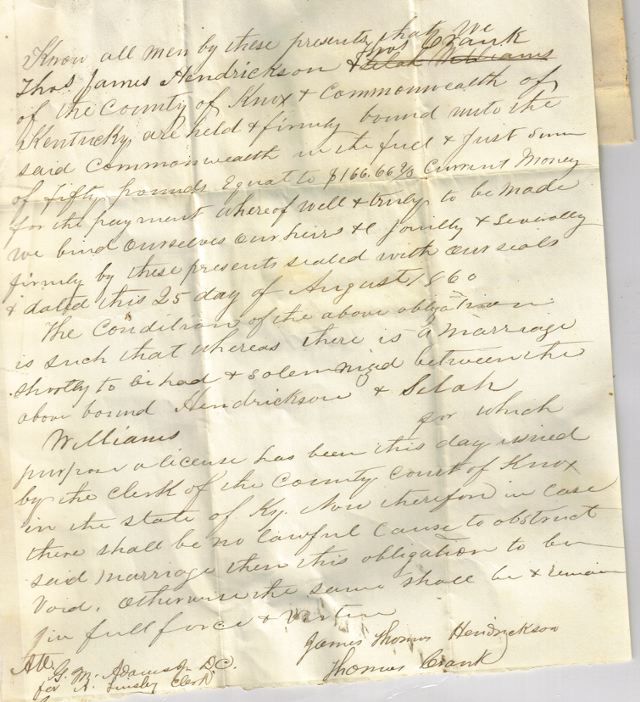 Know all men by these presents, that we
Thos. James Hendrickson & Thos Crank Selah Williams
of the County of Knox & Commonwealth of
Kentucky are held & firmly bound unto the
said Commonwealth in the full & Just Sum
of fifty pounds Equal to $166.66 2/3 Current Money
for the payment whereof well & truly to be made
we bind ourselves our heirs &c Jointly & Severally
firmly by these presents sealed with our seals
& dated this 25 day of August 1860
The Condition of the above obligation
is such that whereas there is a Marriage
shortly to be had & solemnized between the
above bound Hendrickson & Selah
Williams for which
purpose a license has been this day issued
by the clerk of the County Court of Knox
in the State of Ky. Now therefore in case
there shall be no lawful Cause to obstruct
said Marriage then this obligation to be
Void, otherwise the same shall be & remain
in full force & virtue
James Thomas Hendrickson
Thomas Crank
Att.
G. M. Adams Jr D.C.
for Clerk